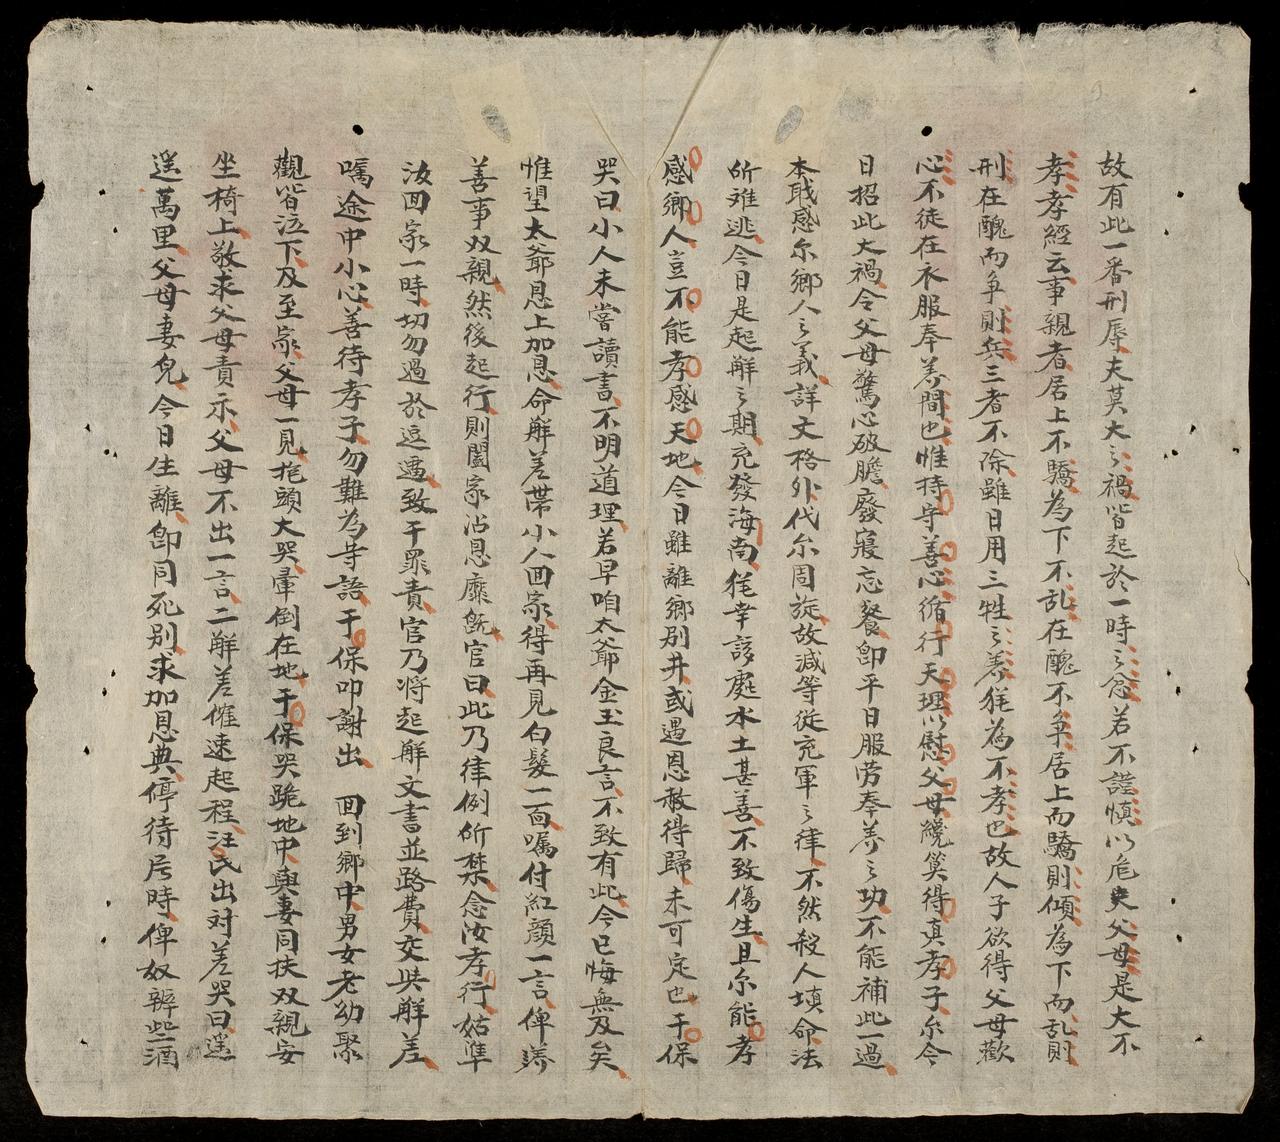 故有此一番刑辱夫莫大之禍皆起於一時之忿若不謹慎以危夫父母是大不
孝孝經云事親者居上不驕為下不乱在醜不争居上而驕則傾為下而乱則
刑在醜而争則兵三者不除雖日用三牲之养猶為不孝也故人子欲得父母歡
心不徒在衣服奉养間也惟持守善心循行天理以慰父母纔筭得真孝子尔今
日招此大禍令父母驚心破膽廢寢忘餐即平日服劳奉养之功不能補此一過
本戢感尔鄉人之義詳文格外代尔周旋故減等從充軍之律不然殺人填命法
所难逃今日是起解之期充發海南猶幸該處水土甚善不致傷生且尔能孝
感鄉人豈不能孝感天地今日雖離鄉别井或遇恩赦得歸未可定也于保
哭曰小人未嘗讀書不明道理若早咱太爺金玉良言不致有此今已悔無及矣
惟望太爺恩上加恩命解差帶小人回家得再見白髮一面嘱付紅顔一言俾养
善事双親然後起行則闔家沾恩靡既官曰此乃律例所禁念汝孝行姑準
汝回家一時切勿過於逗遛致干罪責官乃将起解文書並路費交與解差
嘱途中小心善待孝子勿難為等語于保叩謝出 回到鄉中男女老幼聚
觀皆泣下及至家父母一見抱頭大哭暈倒在地于保哭跪地中與妻同扶双親安
坐椅上敬求父母責示父母不出一言二解差催速起程汪氏出对差哭曰遥
遥萬里父母妻兒今日生離即同死别求加恩典停待居時俾奴辦些酒